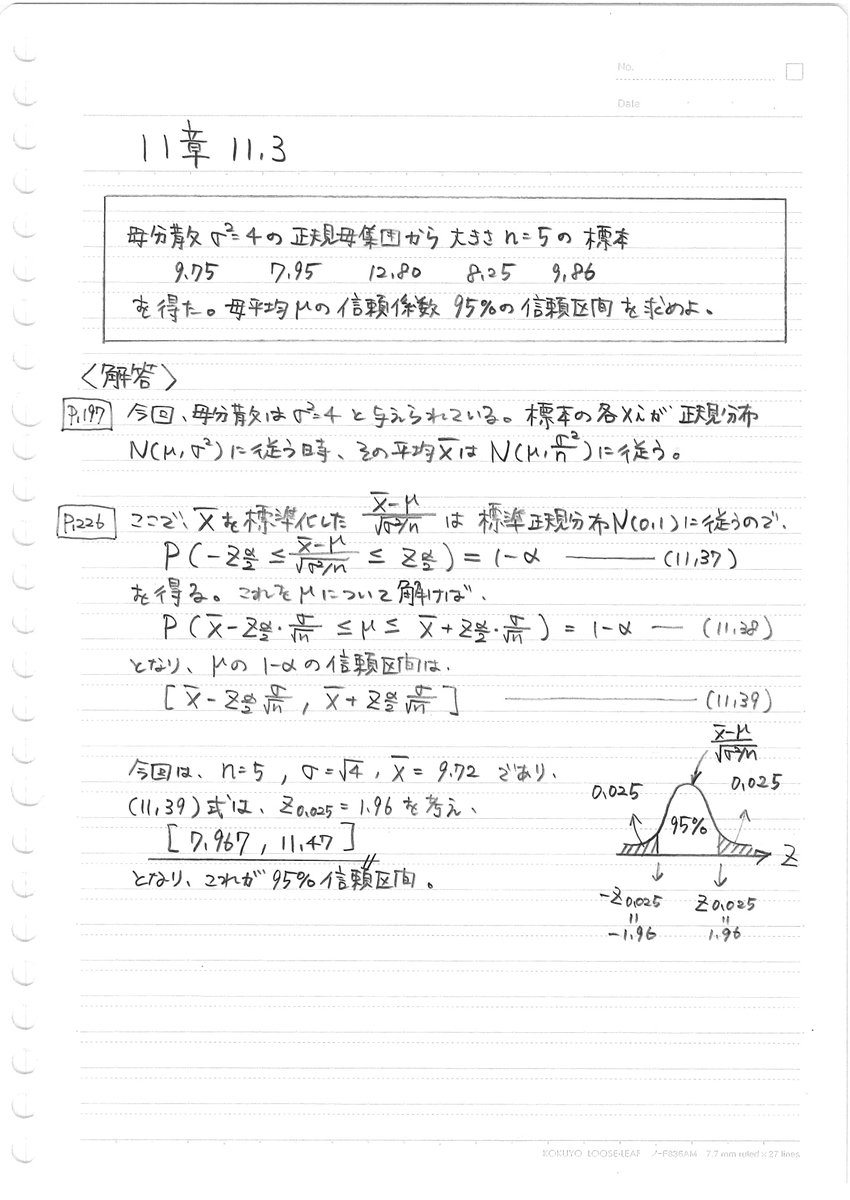 No.
Date
11章 11.3
母分散 σ²=4の 正規母集団から 大きさ n=5の 標本
9.75 7.95 12.80 8.25 9.86
を得た。母平均μの信頼係数 95%の信頼区間を求めよ。
〈解答〉
P.197 今回、母分散は σ²=4 と与えられている。標本の各Xiが 正規分布
N(μ, σ²)に従う時、その平均X̄は N(μ, σ²/n)に従う。
P.226 ここで、X̄を標準化した (X̄-μ)/√(σ²/n) は 標準正規分布N(0,1)に従うので、
P(-Zα/2 ≤ (X̄-μ)/√(σ²/n) ≤ Zα/2) = 1-α ――― (11.37)
を得る。これをμについて解けば、
P(X̄-Zα/2・σ/√n ≤ μ ≤ X̄+Zα/2・σ/√n) = 1-α ― (11.38)
となり、μの 1-αの信頼区間は、
[X̄-Zα/2 σ/√n , X̄+Zα/2 σ/√n] ――――― (11.39)
今回は、n=5 , σ=√4 , X̄=9.72 であり、
(11.39)式は、Z0.025=1.96を考え、
[7.967 , 11.47]
となり、これが95%信頼区間。
(X̄-μ)/√(σ²/n)
0.025 0.025
95%
Z
-Z0.025 Z0.025
= =
-1.96 1.96
KOKUYO LOOSE-LEAF ノ-F836AM 7.7 mm ruled×27 lines